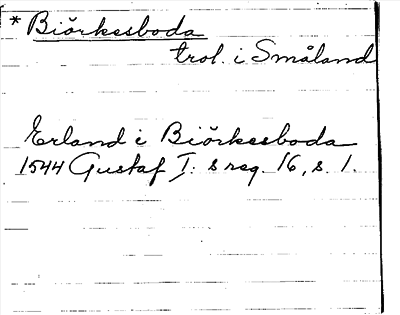 * Biörkesboda
trol. i Småland
Erland i Biörkesboda
1544 Gustaf I: s reg. 16, s. 1.